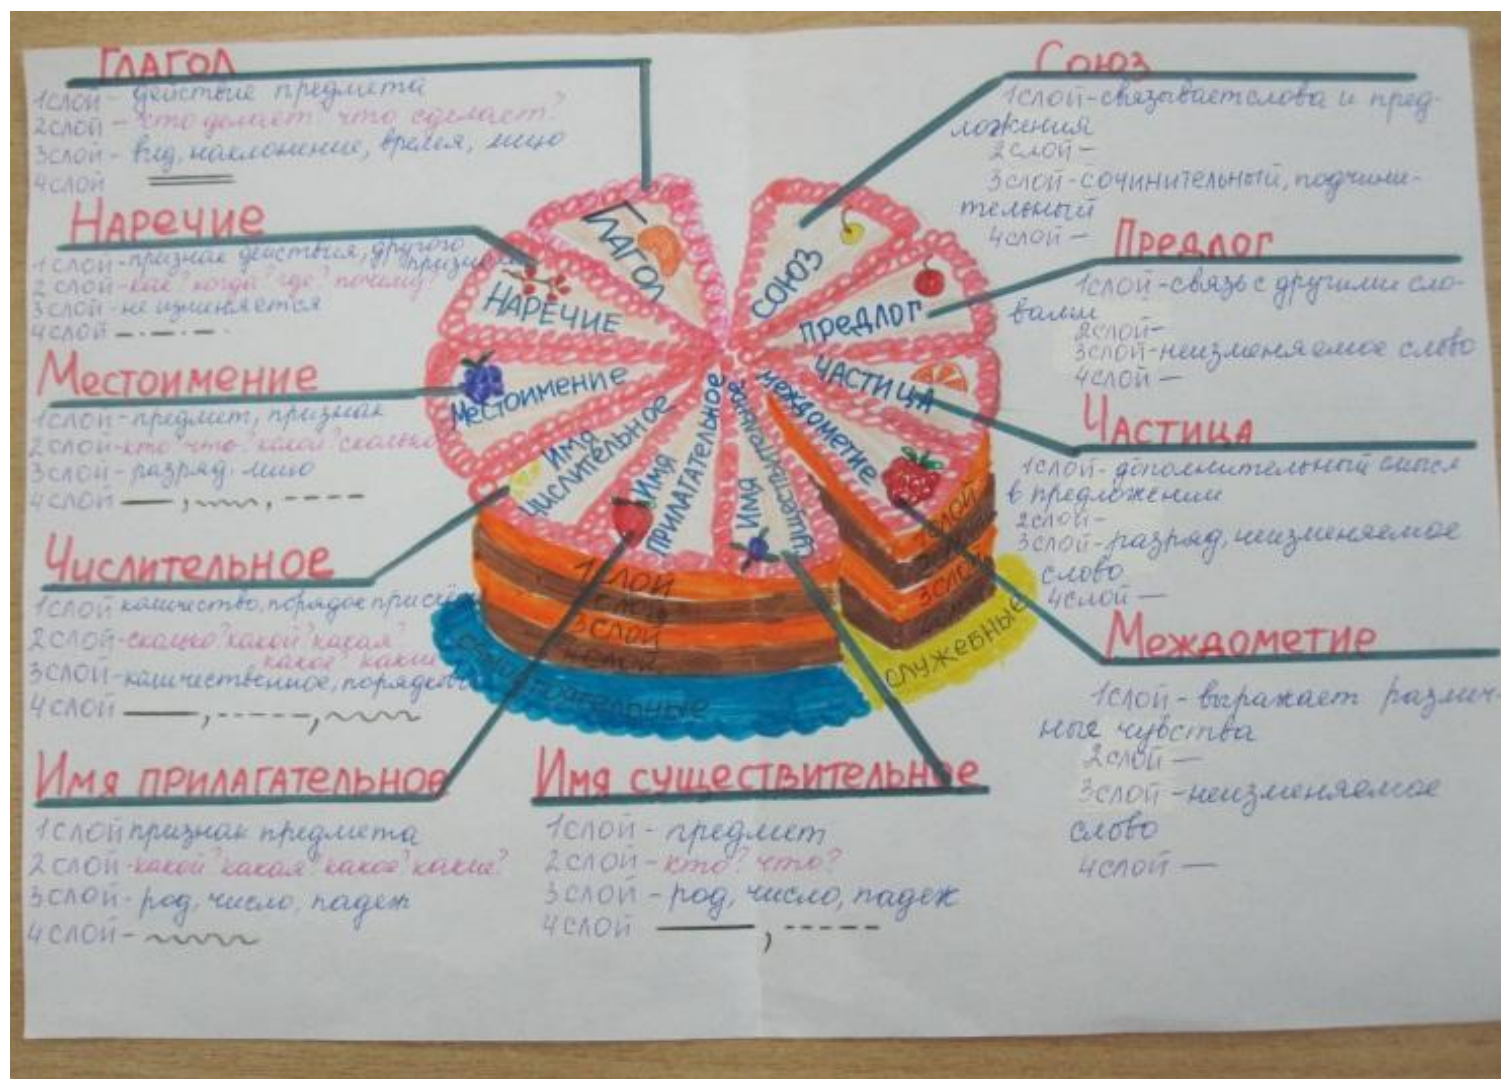 Глагол
1слой - действие предмета
2слой - что делает? что сделает?
3слой - вид, наклонение, время, лицо
4слой
Наречие
1слой - признак действия, другого
признака
2слой - как? когда? где? почему?
3слой - не изменяется
4слой
Местоимение
1слой - предмет, признак
2слой - кто? что? какой? сколько
3слой - разряд, лицо
4слой
Числительное
1слой количество, порядок при
2слой - сколько? какой? какая?
какое? какие
3слой - количественное,
4слой
Имя прилагательное
1слой признак предмета
2слой - какой? какая? какое? какие?
3слой - род, число, падеж
4слой -
Имя существительное
1слой - предмет
2слой - кто? что?
3слой - род, число, падеж
4слой
Союз
1слой - связывает слова и пред-
ложения
2слой -
3слой - сочинительный, подчини-
тельный
4слой -
Предлог
1слой - связь с другими сло-
вами
2слой -
3слой - неизменяемое слово
4слой -
Частица
1слой - дополнительный смысл
в предложении
2слой -
3слой - разряд, неизменяемое
слово
4слой -
Междометие
1слой - выражает различ-
ные чувства
2слой -
3слой - неизменяемое
слово
4слой -
Глагол
Наречие
Местоимение
Имя
числительное
Имя
прилагательное
Имя
существительное
Союз
Предлог
Частица
междометие
1слой
слой
3слой
4слой
1слой
3слой
самостоятельные
служебные